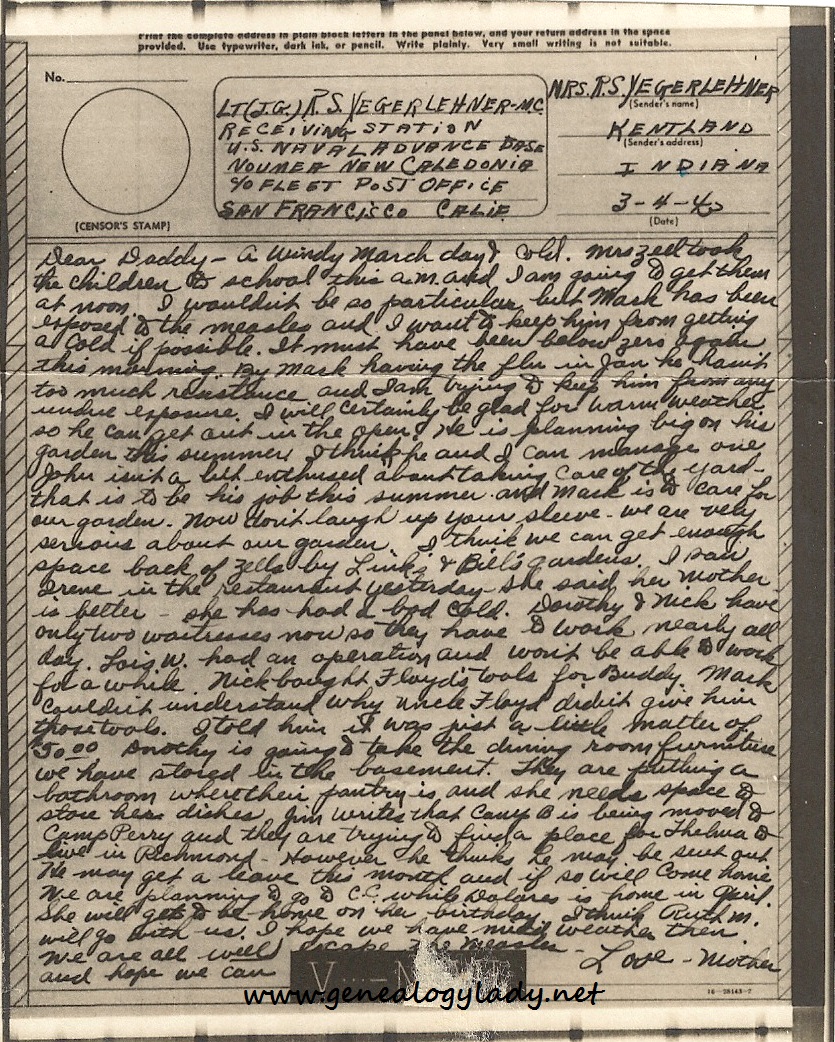 Print the complete address in plain block letters in the panel below, and your return address in the space
provided. Use typewriter, dark ink, or pencil. Write plainly. Very small writing is not suitable.
No.
(CENSOR'S STAMP)
LT(J.G.) R.S. YEGERLEHNER-MC
RECEIVING STATION
U.S. NAVAL ADVANCE BASE
NOUMEA NEW CALEDONIA
℅ FLEET POST OFFICE
SAN FRANCISCO CALIF
MRS. R.S. YEGERLEHNER
(Sender's name)
KENTLAND
(Sender's address)
INDIANA
3-4-43
(Date)
Dear Daddy - A windy March day & cold. Mrs Zell took
the children to school this a.m. and I am going to get them
at noon. I wouldn't be so particular, but Mark has been
exposed to the measles and I want to keep him from getting
a cold if possible. It must have been below zero again
this morning. By Mark having the flu in Jan he hasn't
too much resistance and I am trying to keep him from any
undue exposure. I will certainly be glad for warm weather
so he can get out in the open. He is planning big on his
garden this summer. I think he and I can manage one
John isn't a bit enthused about taking care of the yard -
that is to be his job this summer and Mark is to care for
our garden. Now don't laugh up your sleeve - we are very
serious about our garden. I think we can get enough
space back of Zells by Link's & Bill's gardens. I saw
Irene in the restaurant yesterday - she said her mother
is better - she has had a bad cold. Dorothy & Nick have
only two waitresses now so they have to work nearly all
day. Lois W. had an operation and won't be able to work
for a while. Nick bought Floyd's tools for Buddy. Mark
couldn't understand why Uncle Floyd didn't give him
those tools. I told him it was just a little matter of
$50.00 Dorothy is going to take the dining room furniture
we have stored in the basement. They are putting a
bathroom where their pantry is and she needs space to
store her dishes. Jim writes that Camp B is being moved to
Camp Perry and they are trying to find a place for Thelma to
live in Richmond - However he thinks he may be sent out
He may get a leave this month and if so will come home
We are planning to go to C.C. while Dolores is home in April.
She will get to be home on her birthday. I think Ruth M.
will go with us. I hope we have nice weather then
We are all well
and hope we can escape the measles - Love - Mother
V...-MAIL
16-28143-7
www.genealogylady.net